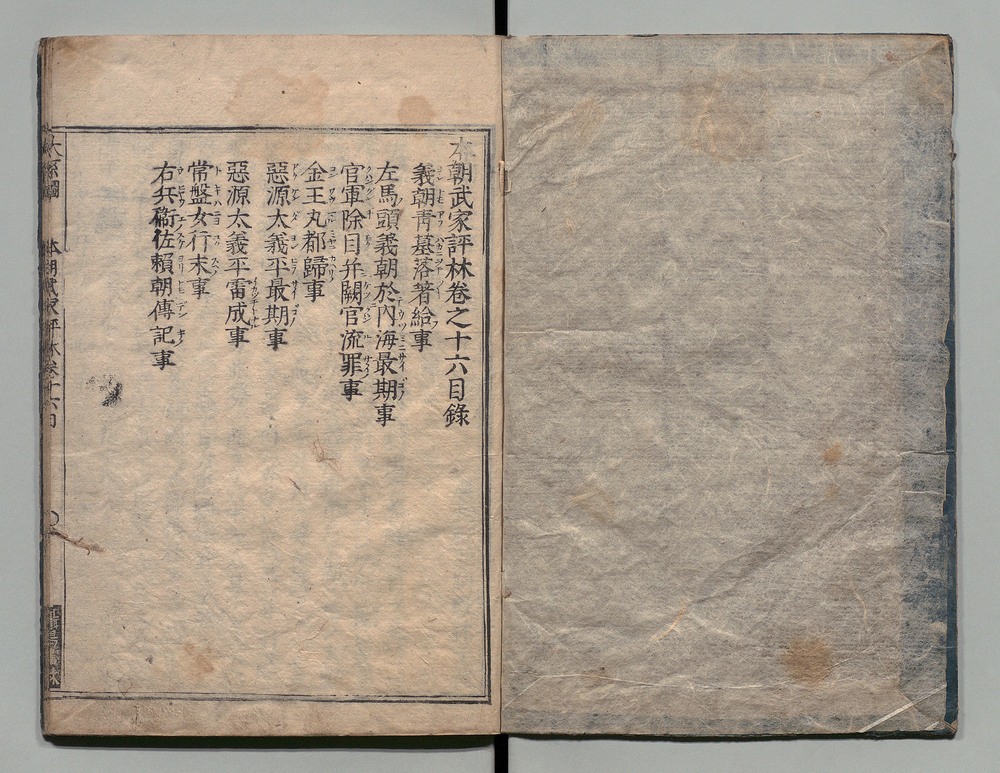 本朝武家評林卷之十六目錄
義朝靑墓落著給事
左馬頭義朝於内海最期事
官軍除目并闕官流罪事
金王丸都歸事
惡源太義平最期事
惡源太義平雷成事
常盤女行末事
右兵衞佐賴朝傳記事
大系圖
本朝武家評林卷十六目